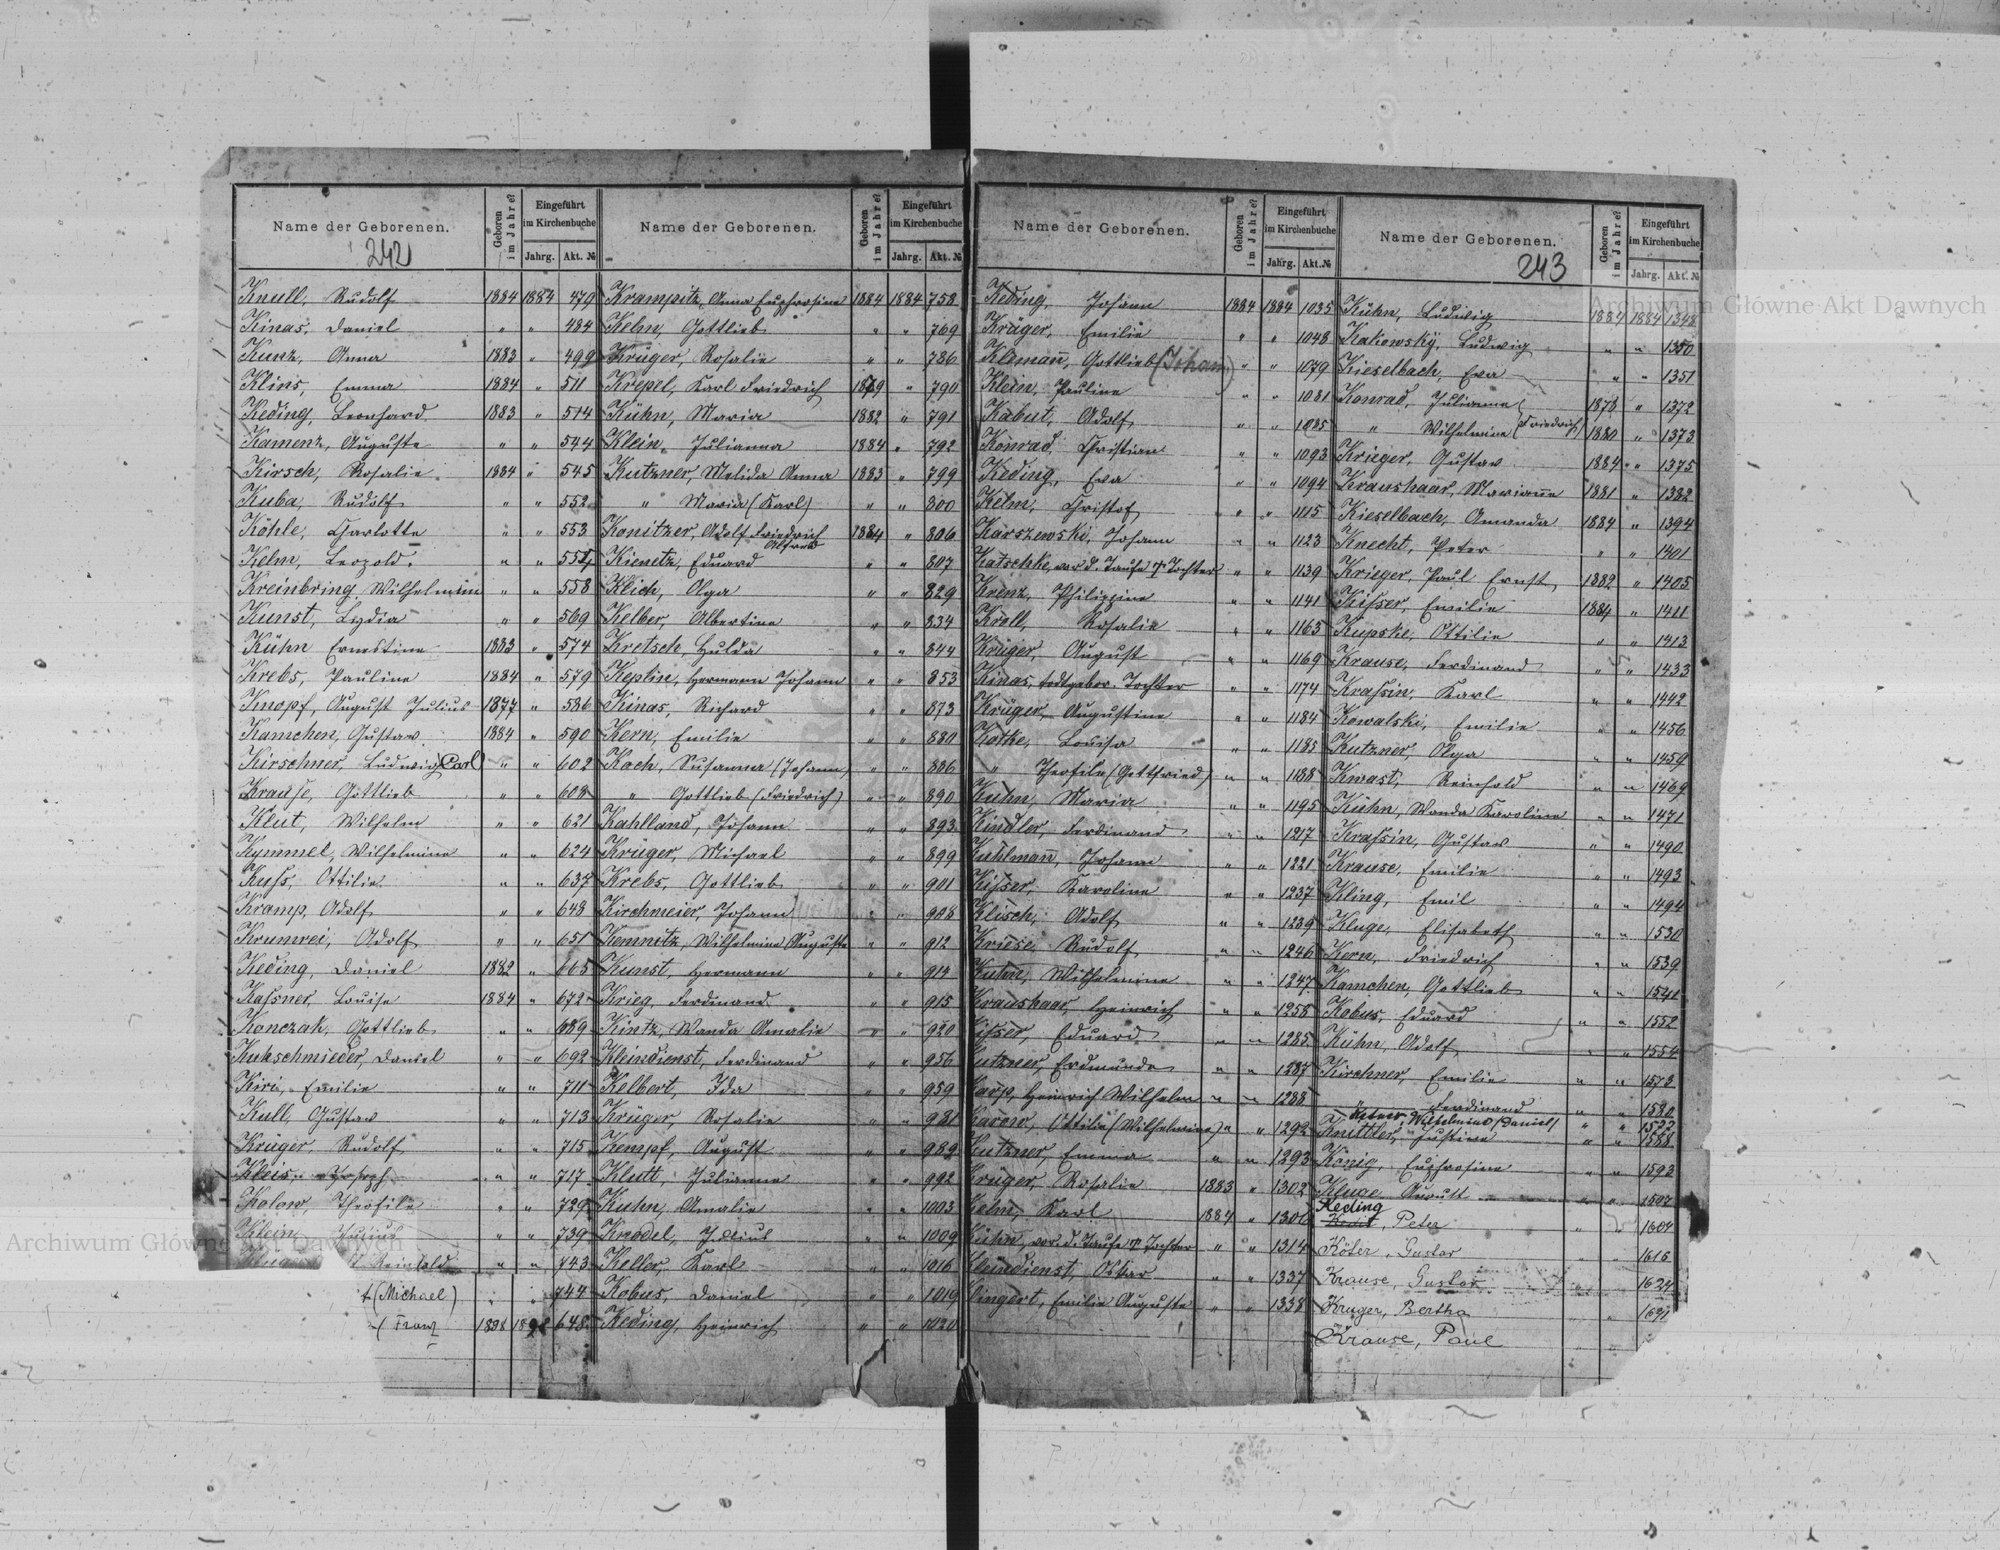 Name der Geborenen. Geboren im Jahre? Eingeführt im Kirchenbuche Jahrg. Akt. №
242
Knull, Rudolf 1884 1884 479
Kinas, Daniel " " 484
Kunz, Anna 1883 " 499
Klins, Emma 1884 " 511
Keding, Leonhard 1883 " 514
Kamenz, Auguste " " 544
Kirsch, Rosalie 1884 " 545
Kuba, Rudolf " " 552
Köhle, Charlotte " " 553
Kelm, Leopold. " "
Kreinbring, Wilhelmine " " 558
Kunst, Lydia " " 569
Kühn Ernestine 1883 " 574
Krebs, Pauline 1884 " 579
Knopf, August Julius 1877 " 586
Kamchen, Gustav 1884 " 590
Kirschner, Ludwig (Carl) " " 602
Krause, Gottlieb " " 608
Klut, Wilhelm " " 621
Kymmel, Wilhelmine " " 624
Kuss, Ottilie " " 637
Kramp, Adolf " " 648
Krumrei, Adolf " " 651
Keding, Daniel 1882 " 665
Kassner, Louise 1884 " 672
Konczak, Gottlieb " " 689
Kukschmieder, Daniel " " 692
Kiri, Emilie " " 711
Kull, Gustav " " 713
Krüger, Rudolf " " 715
Kleis, Joseph " " 717
Kolow, Theofile " " 729
Klein, Julius " " 739
Reinhold " " 743
(Michael) " " 744
(Franz 648
Name der Geborenen. Geboren im Jahre? Eingeführt im Kirchenbuche Jahrg. Akt. №
Krampitz, Anna Euphrosine 1884 1884 758
Kelm, Gottlieb " " 769
Krüger, Rosalie " " 786
Krepel, Karl Friedrich 1879 " 790
Kühn, Maria 1882 " 791
Klein, Julianna 1884 " 792
Kutzner, Melida Anna 1883 " 799
" Maria (Karl) " " 800
Konitzer, Adolf Friedrich Alfred 1884 " 806
Kienetz, Eduard " " 807
Klich, Olga " " 829
Kelber, Albertine " " 834
Kretsch, Hulda " " 844
Keplin, Hermann Johann " " 853
Kinas, Richard " " 873
Kern, Emilie " " 880
Koch, Susanna (Johann) " " 886
" Gottlieb (Friedrich) " " 890
Kahlland, Johann " " 893
Krüger, Michael " " 899
Krebs, Gottlieb " " 901
Kirchmeier, Johann " " 908
Kemnitz, Wilhelmine Auguste " " 912
Kunst, Hermann " " 914
Krieg, Ferdinand " " 915
Kintz, Wanda Amalie " " 920
Kleindienst, Ferdinand " " 956
Kelbert, Ida " " 959
Krüger, Rosalie " " 981
Kempf, August " " 989
Klutt, Julianne " " 992
Kuhn, Amalie " " 1003
Knodel, Julius " " 1009
Keller, Karl " " 1016
Kobus, Daniel " " 1019
Keding, Heinrich " " 1020
Name der Geborenen. Geboren im Jahre? Eingeführt im Kirchenbuche Jahrg. Akt. №
Keding, Johann 1884 1884 1035
Krüger, Emilie " " 1048
Klemann, Gottlieb (Johann) " " 1079
Klein, Pauline " " 1081
Kabut, Adolf " " 1085
Konrad, Christian " " 1093
Keding, Eva " " 1094
Kelm, Christof " " 1115
Karszewski, Johann " " 1123
Katschke, vor d. Taufe † Tochter " " 1139
Krenz, Philippine " " 1141
Kroll, Rosalie " " 1163
Krüger, August " " 1169
Kinas, todtgebor. Tochter " " 1174
Krüger, Augustine " " 1184
Kotke, Louisa " " 1185
" Theofile (Gottfried) " " 1188
Kühn, Maria " " 1195
Kindler, Ferdinand " " 1217
Kuhlmann, Johann " " 1221
Kisser, Karoline " " 1237
Klisch, Adolf " " 1239
Kriese, Rudolf " " 1246
Kuhn, Wilhelmine " " 1247
Kraushaar, Heinrich " " 1258
Kisser, Eduard " " 1285
Kutzner, Erdmunde " " 1287
Heinrich Wilhelm " " 1288
Karow, Ottilie (Wilhelmine) " " 1292
Kutzner, Emma " " 1293
Krüger, Rosalie 1883 " 1302
Kelm, Karl 1884 " 1306
Kühn, vor d. Taufe † Tochter " " 1314
Kleindienst, Oskar " " 1337
Klingert, Emilie Auguste " " 1338
Name der Geborenen. Geboren im Jahre? Eingeführt im Kirchenbuche Jahrg. Akt. №
243
Kühn, Ludwig 1884 1884 1348
Kakowsky, Ludwig " " 1350
Kieselbach, Eva " " 1351
Konrad, Julianne 1878 " 1372
" Wilhelmine (Friedrich) 1880 " 1373
Krieger, Gustav 1884 " 1375
Kraushaar, Marianne 1881 " 1382
Kieselbach, Amanda 1884 " 1394
Knecht, Peter " " 1401
Krieger, Paul Ernst 1882 " 1405
Kisser, Emilie 1884 " 1411
Kupske, Ottilie " " 1413
Krause, Ferdinand " " 1433
Krassin, Karl " " 1442
Kowalski, Emilie " " 1456
Kutzner, Olga " " 1459
Kwast, Reinhold " " 1469
Kühn, Wanda Karoline " " 1471
Krassin, Gustav " " 1490
Krause, Emilie " " 1493
Kling, Emil " " 1494
Kluge, Elisabeth " " 1530
Kern, Friedrich " " 1539
Kamchen, Gottlieb " " 1541
Kobus, Eduard " " 1552
Kühn, Adolf " " 1554
Kirchner, Emilie " " 1573
" Ferdinand " " 1580
Wilhelmine (Daniel) " "
Knittler, Justine " " 1588
König, Euphrosine " " 1593
Kluge August " " 1597
Keding
Peter " " 1604
Köter, Gustav 1616
Krause, Gustav 1624
Krüger, Bertha
Krause, Paul
Archiwum Główne Akt Dawnych
Archiwum Główne Akt Dawnych